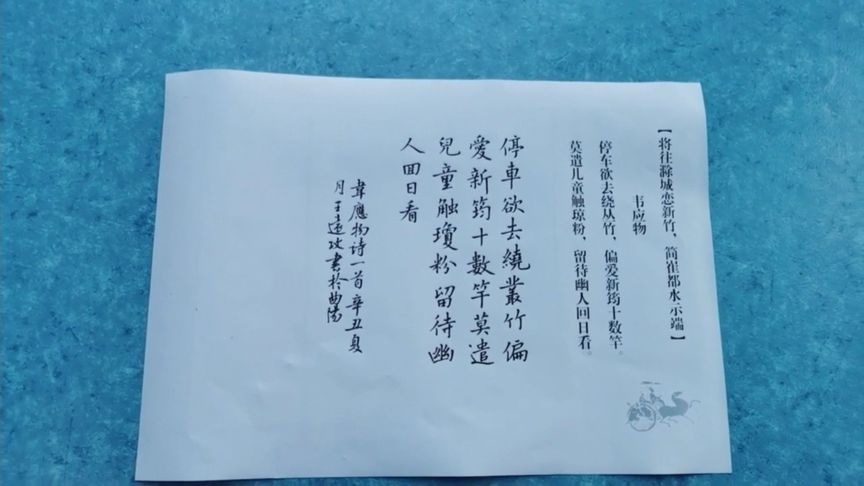 【将往滁城恋新竹，简崔都水示端】
韦应物
停车欲去绕丛竹，偏爱新筠十数竿。
莫遣儿童触琼粉，留待幽人回日看。
停車欲去繞叢竹偏
愛新筠十數竿莫遣
兒童触瓊粉留待幽
人回日看
韋應物诗一首辛丑夏
月王遠攻書於曲陽